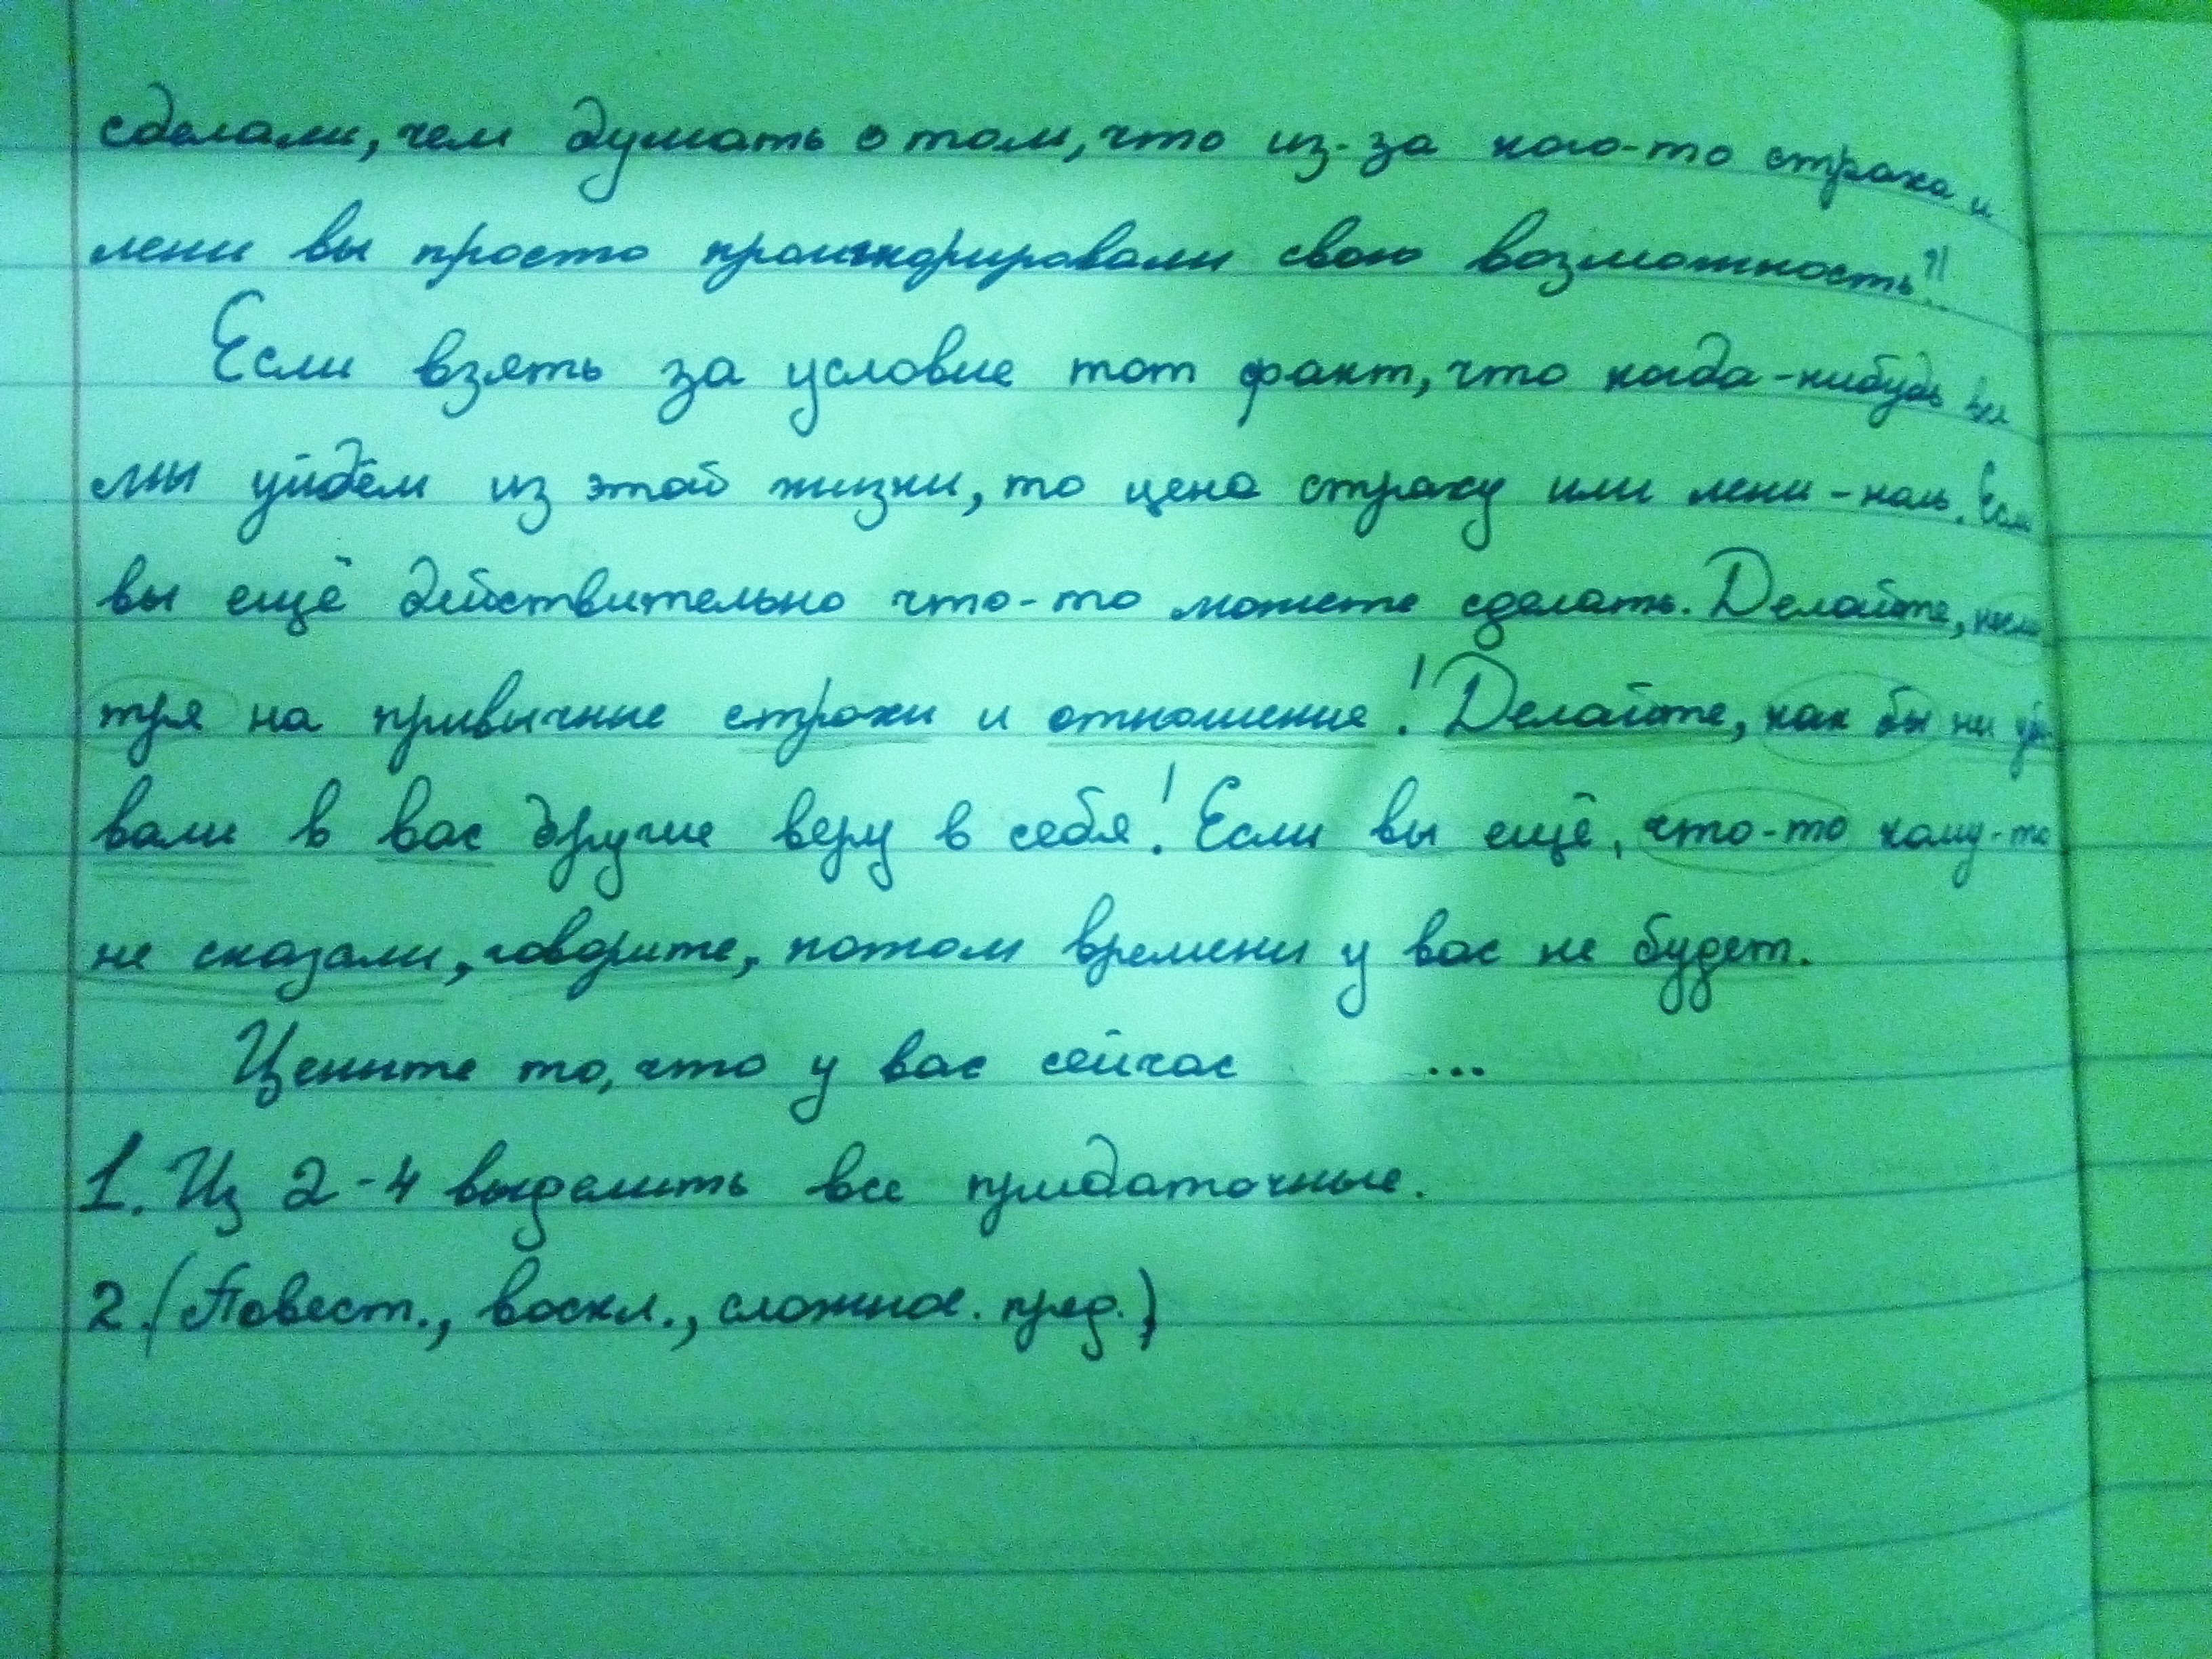 сделали, чем думать о том, что из-за кого-то страха и
лени вы просто проигнорировали свою возможность?!
Если взять за условие тот факт, что когда-нибудь все
мы уйдём из этой жизни, то цена страху или лени - ноль. Если
вы ещё действительно что-то можете сделать. Делайте, несмо
тря на привычные страхи и отношение! Делайте, как бы ни уби
вали в вас другие веру в себя! Если вы ещё, что-то кому-то
не сказали, говорите, потом времени у вас не будет.
Цените то, что у вас сейчас ...
1. Из 2-4 выделить все придаточные.
2. (Повест., воскл., сложное. пред.)